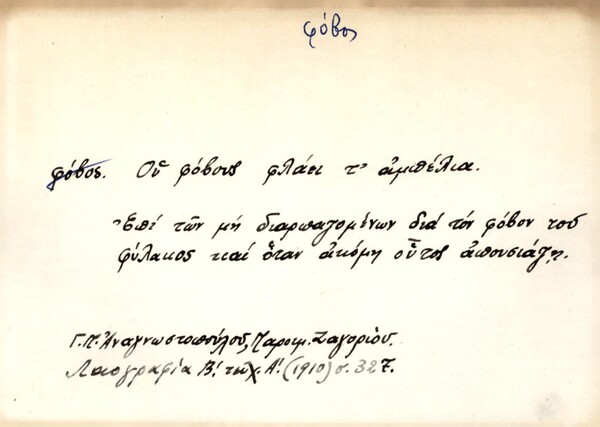 φόβος
φόβος. Οὗ φόβους φλάει τ' ἀμπέλια.
Ἐπί τῶν μή διαρπαζομένων διά τόν φόβον τοῦ
φύλακος καί ὅταν ἀκόμη οὗτος ἀπουσιάζῃ.
Γ.Π. Ἀναγνωστοπούλου, Παροιμ. Ζαγορίου.
Λαογραφία Β! τεῦχ. Α! (1910) σ. 327.